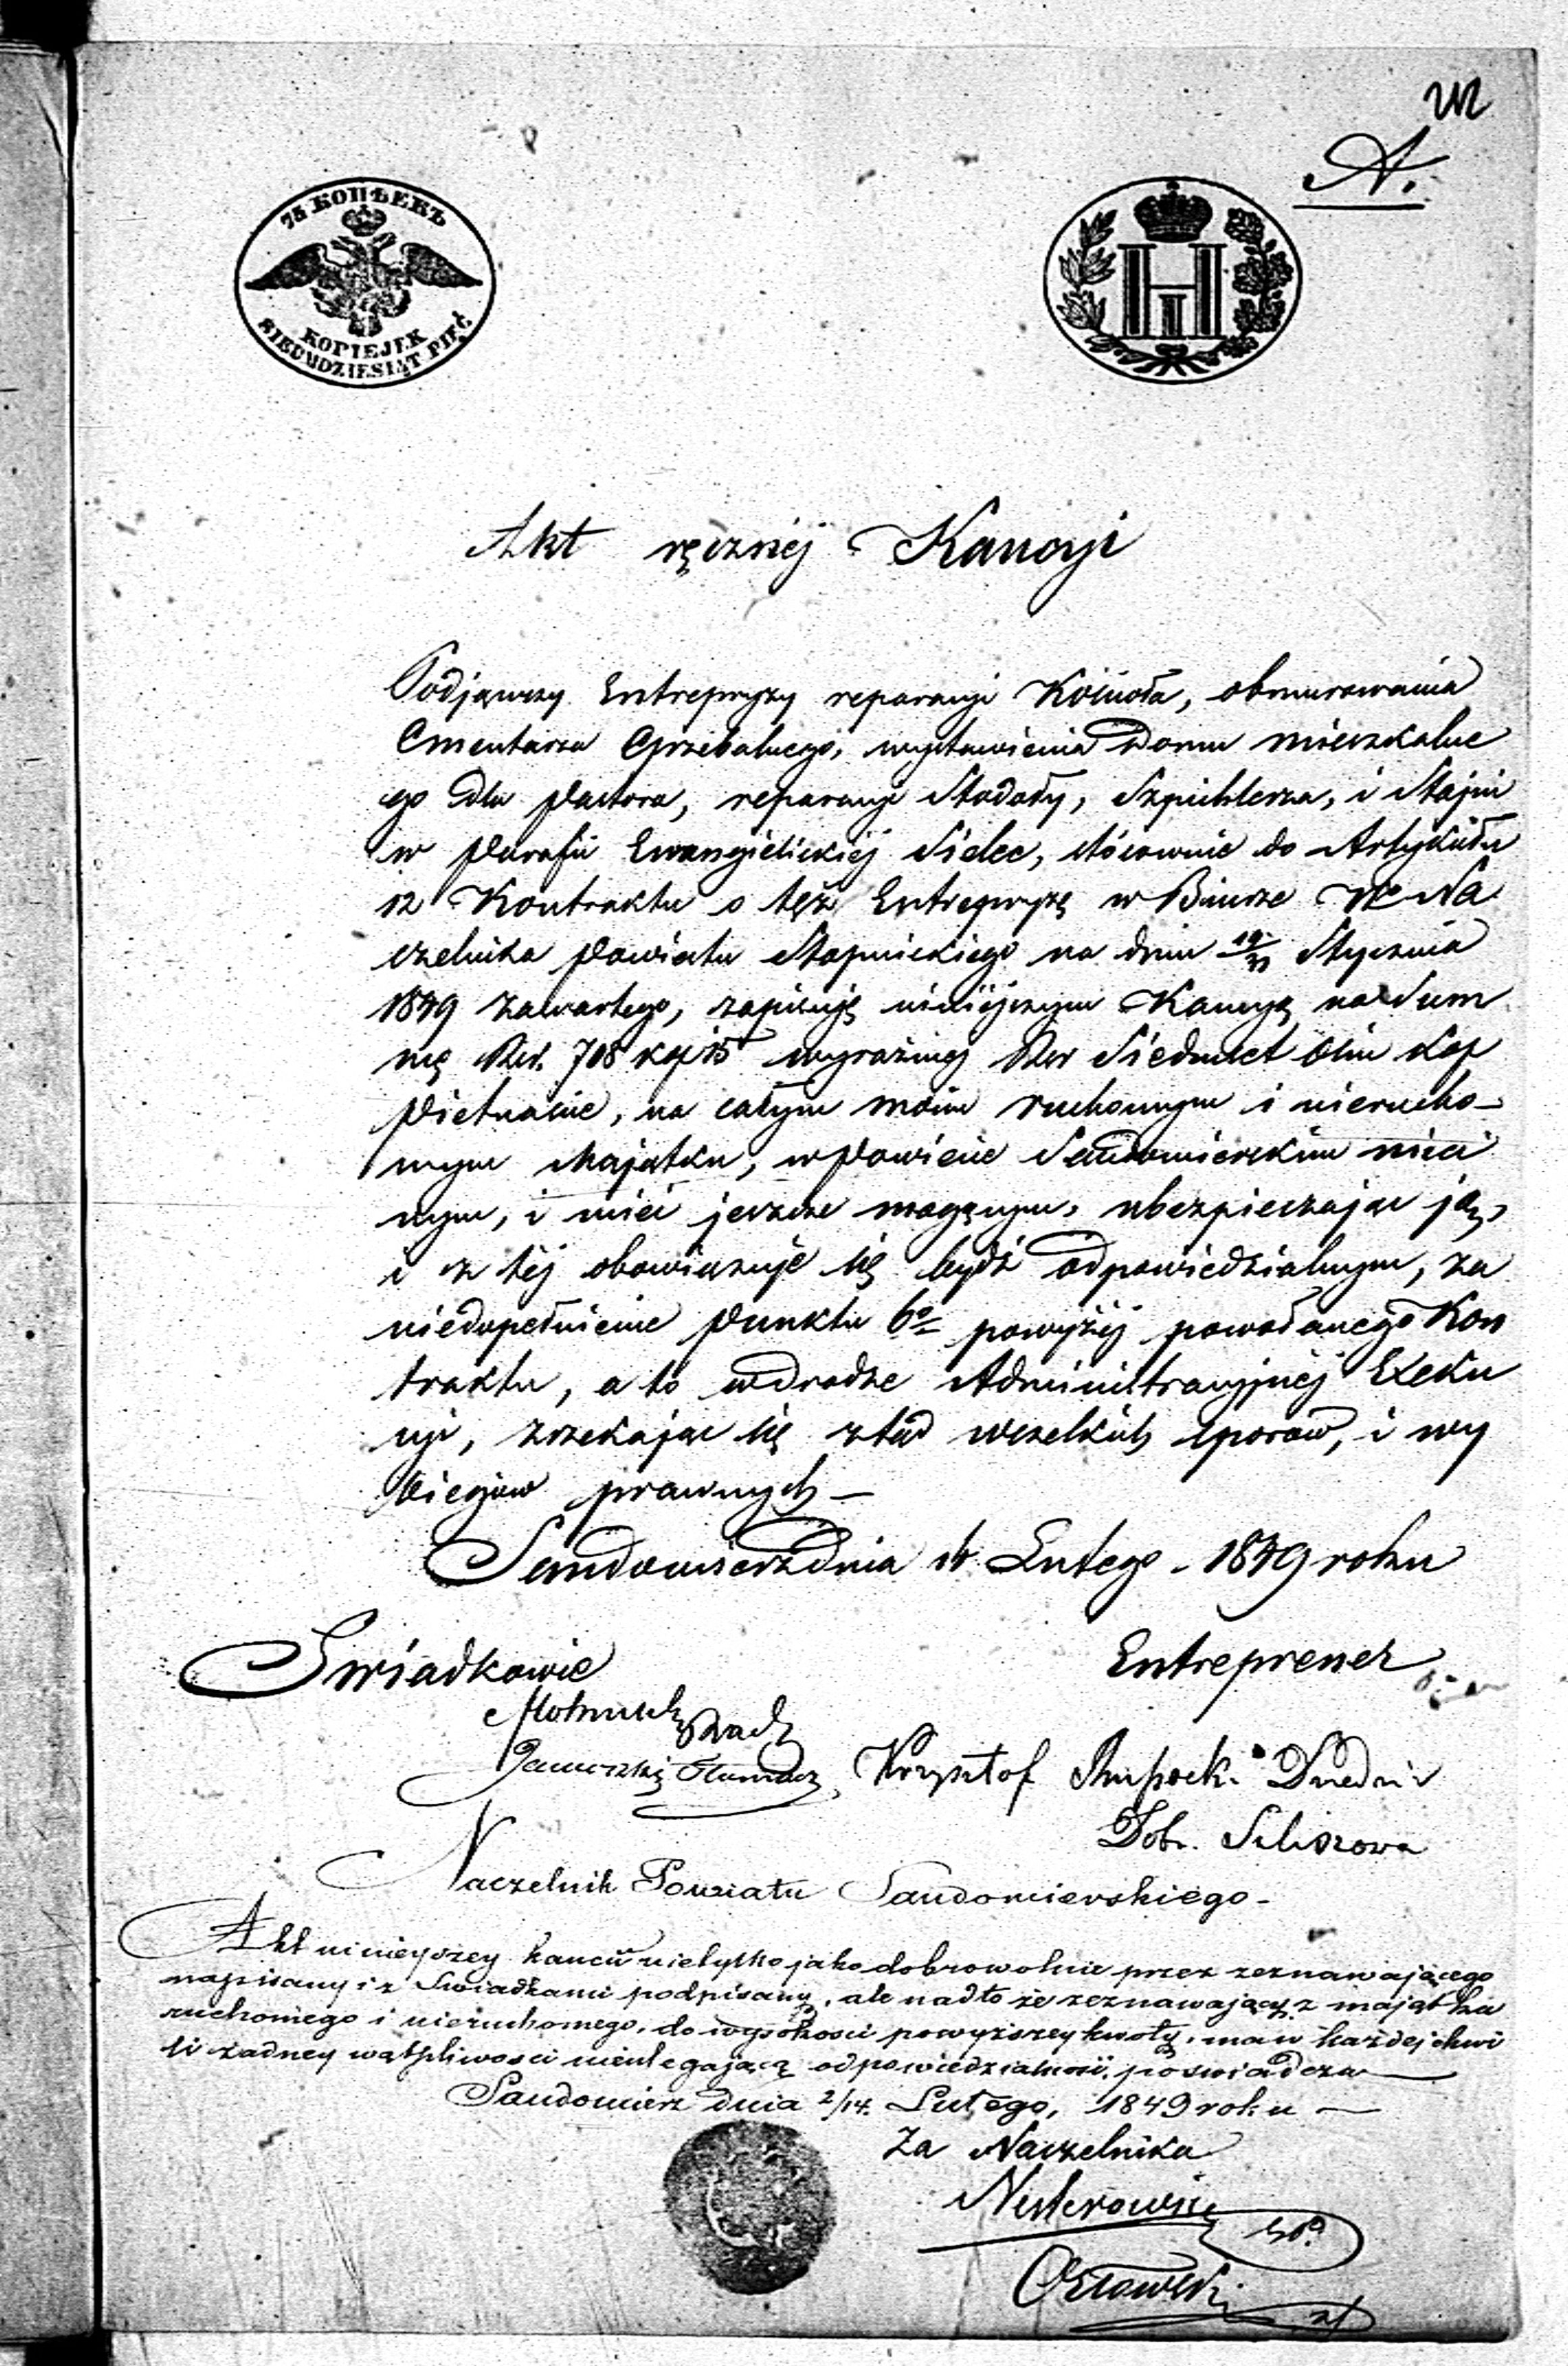 A.
75 КОПѢЕКЪ
KOPIEJEK
SIEDMDZIESIĄT PIĘĆ
Akt ręcznéj Kaucyi
Podjąwszy Entrepryzy reparacyi Kościoła, obmurowania
Cmentarza Grzebalnego, wystawienia Domu mieszkalne
go dla Pastora, reparacyi Stodoły, Szpichlerza, i Stajni
w Parafii Ewangielickiéj Sielec, stósownie do Artykułu
12 Kontraktu o też Entrepryzę w Biurze Wo Na
czelnika Powiatu Stopnickiego na dniu 19/31 Stycznia
1849 zawartego, zapisuję niniéjszym Kaucyą na Sum
mę Rsr. 708 kop 15 wyraźniéj Rsr Siedmset Ośm kop
Pietnaście, na całym moim ruchomym i nierucho-
mym Majątku, w Powiecie Sandomierskim mieć
nym, i mieć jeszcze mogącym, ubezpieczając ją,
i z téj obowiązuję się bydź odpowiedzialnym, za
niedopełnienie Punktu 6o powyżéj powołanego Kon
traktu, a to w drodze Administracyjnéj Exeku
cyi, zrzekając się ztąd wszelkich sporów, i wy
biegów prawnych —
Sandomierz dnia Lutego 1849 roku
Swiadkowie
Entreprener
Krzysztof
Dob.
Naczelnik Powiatu Sandomierskiego-
Akt ninieyszey kaucii nietylko jako dobrowolnie przez zeznawającego
napisany i z Swiadkami podpisany, ale nadto że zeznawający z majątku
ruchomego i nieruchomego, do wysokosci powyższey kwoty, ma w każdej chwi
li żadney wątpliwosci nieulegającą odpowiedzialność, poswiadcza —
Sandomierz dnia 2/14. Lutego, 1849 roku —
Za Naczelnika
Orłowski